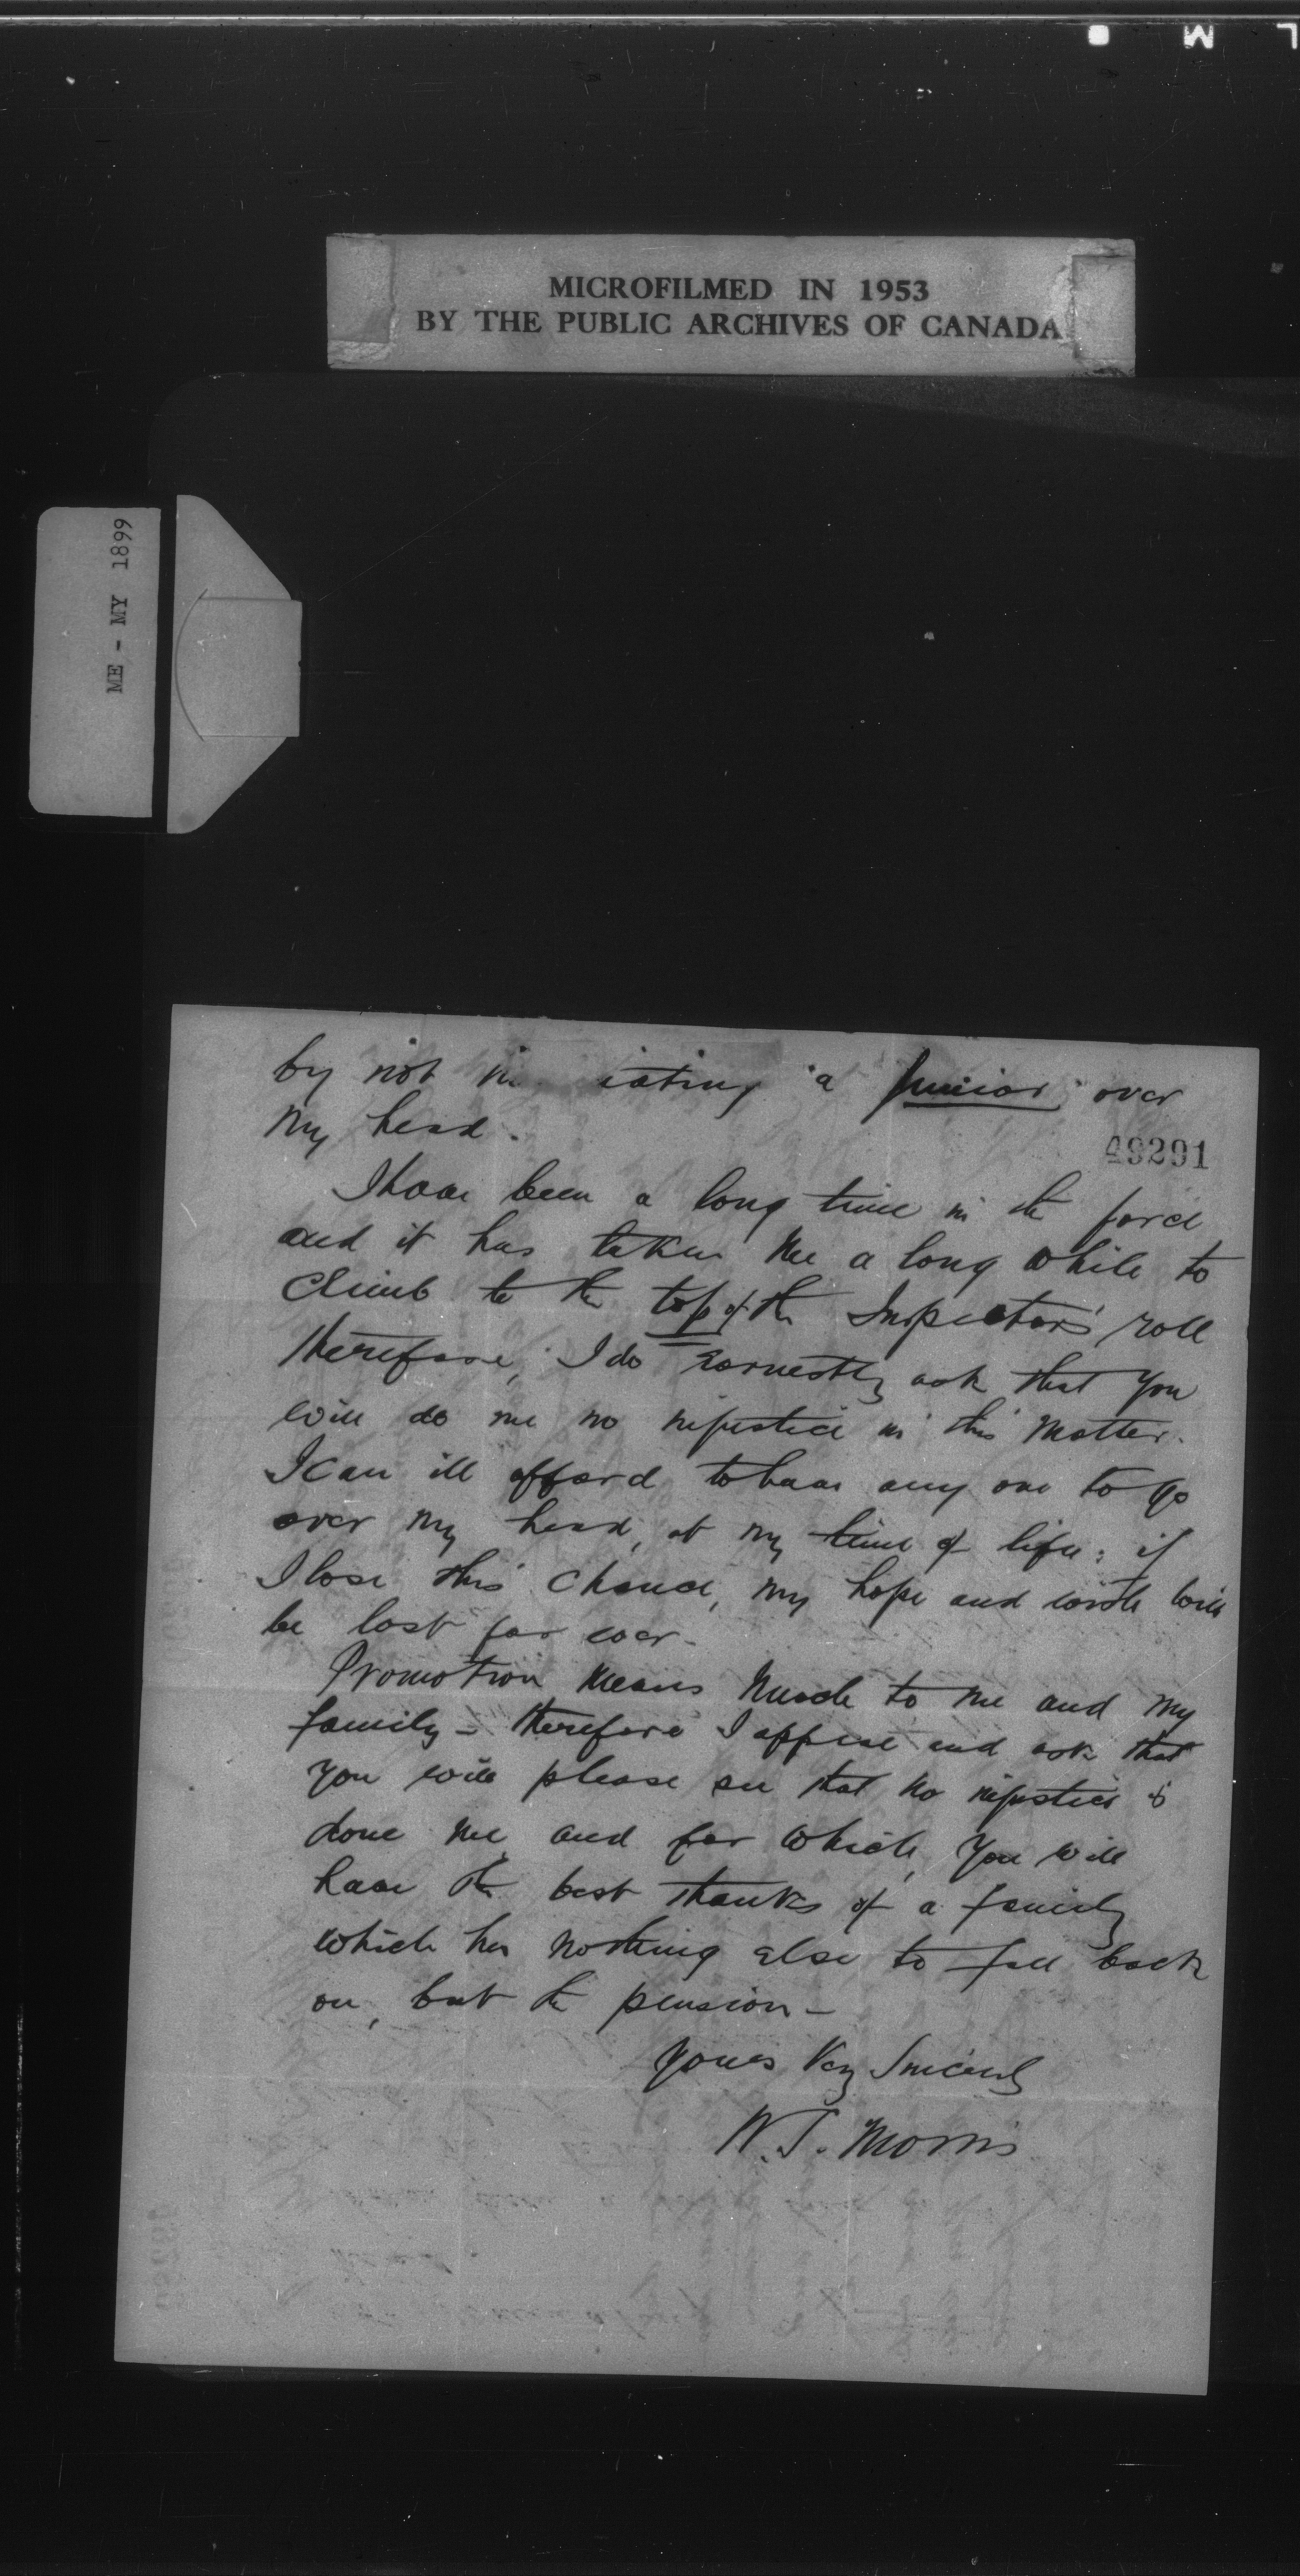 L M
MICROFILMED IN 1953
BY THE PUBLIC ARCHIVES OF CANADA
ME - MY 1899
by not a Junior over
my head.
49291
I have been a long time in the force
and it has taken me a long while to
climb to the top of the Inspectors' roll
therefore, I do earnestly ask that you
will do me no injustice in this matter.
I can ill afford to have any one to go
over my head, at my time of life; if
I lose this chance, my hope and will
be lost for ever.
Promotion means much to me and my
family - therefore I appeal and ask that
you will please see that no injustice is
done me, and for which, you will
have the best thanks of a family
which has nothing else to fall back
on, but the pension -
Yours Very Sincerely
W. J. Morris